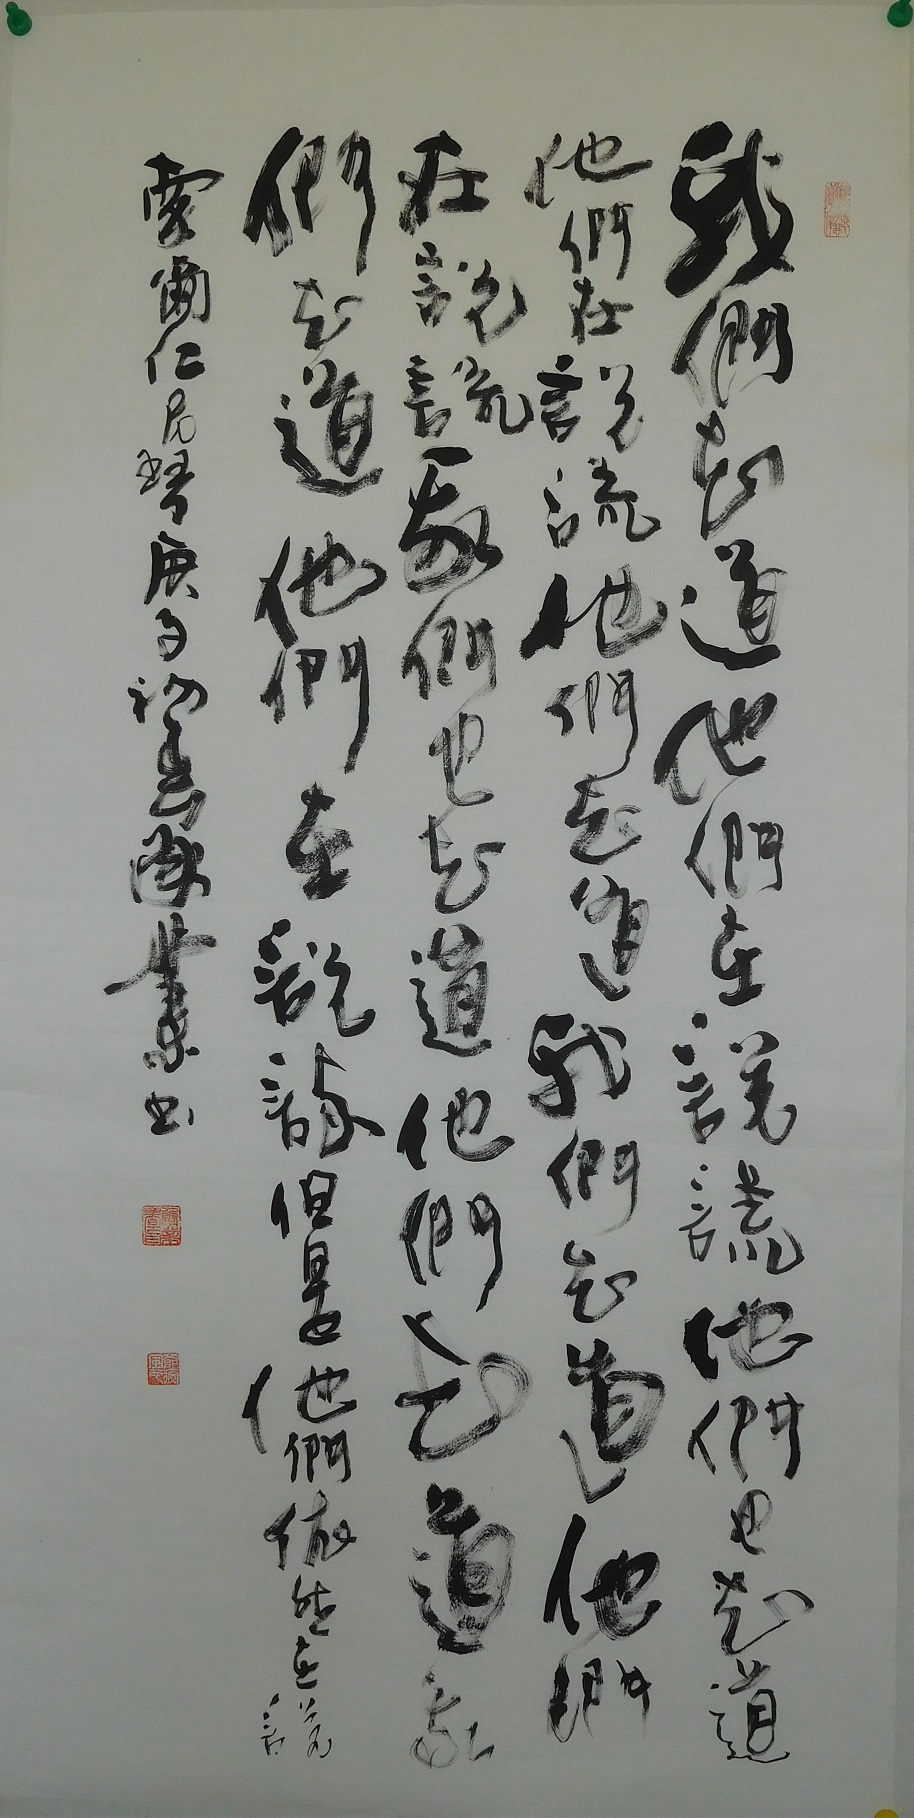 我們知道他們在說謊他們也知道
他們在說謊他們知道我們知道他們
在說謊我們也知道他們知道我
們知道他們在說謊但是他們依然在說
索爾仁尼琴庚子初春業書